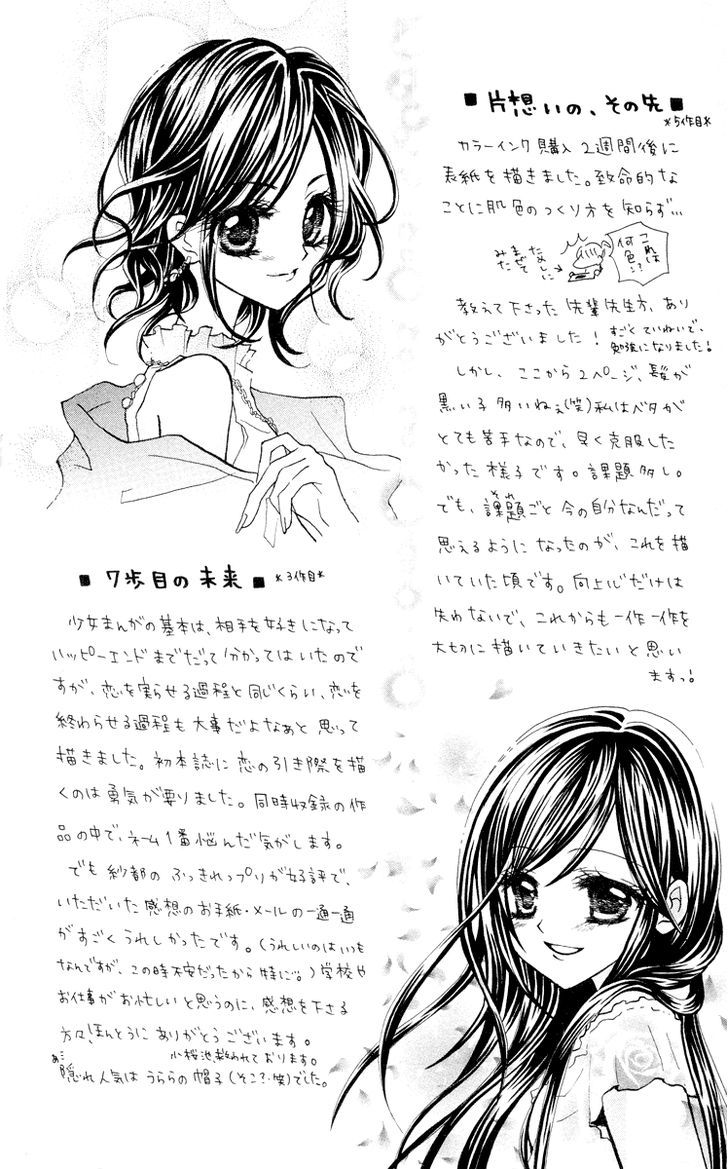 ■片想いの、その先■
*5作目*
カラーインク購入2週間後に
表紙を描きました。致命的な
ことに肌色のつくり方を知らず…
みたて
まぜ
なしに
なた
これは
何色!?
教えて下さった先輩先生方、あり
がとうございました!
すごくていねいで、
勉強になりました!
しかし、ここから2ページ、髪が
黒い子多いねぇ(笑)私はベタが
とても苦手なので、早く克服した
かった様子です。課題多し。
でも、課題ごと今の自分なんだって
それ
思えるようになったのが、これを描
いていた頃です。向上心だけは
失わないで、これからも一作一作を
大切に描いていきたいと思い
ますっ!
■7歩目の未来■
*3作目*
少女まんがの基本は、相手を好きになって
ハッピーエンドまでだって分かってはいたので
すが、恋を実らせる過程と同じくらい、恋を
終わらせる過程も大事だよなぁと思って
描きました。初本誌に恋の引き際を描
くのは勇気が要りました。同時収録の作
品の中で、ネーム1番悩んだ気がします。
でも紗都のふっきれっプリが好評で、
いただいた感想のお手紙・メールの一通一通
がすごくうれしかったです。(うれしいのはいつも
なんですが、この時不安だったから特に…。)学校や
お仕事がお忙しいと思うのに、感想を下さる
方々、ほんとうにありがとうございます。
小桜池救われております。
あ…隠れ人気はうららの帽子(そこ?・笑)でした。